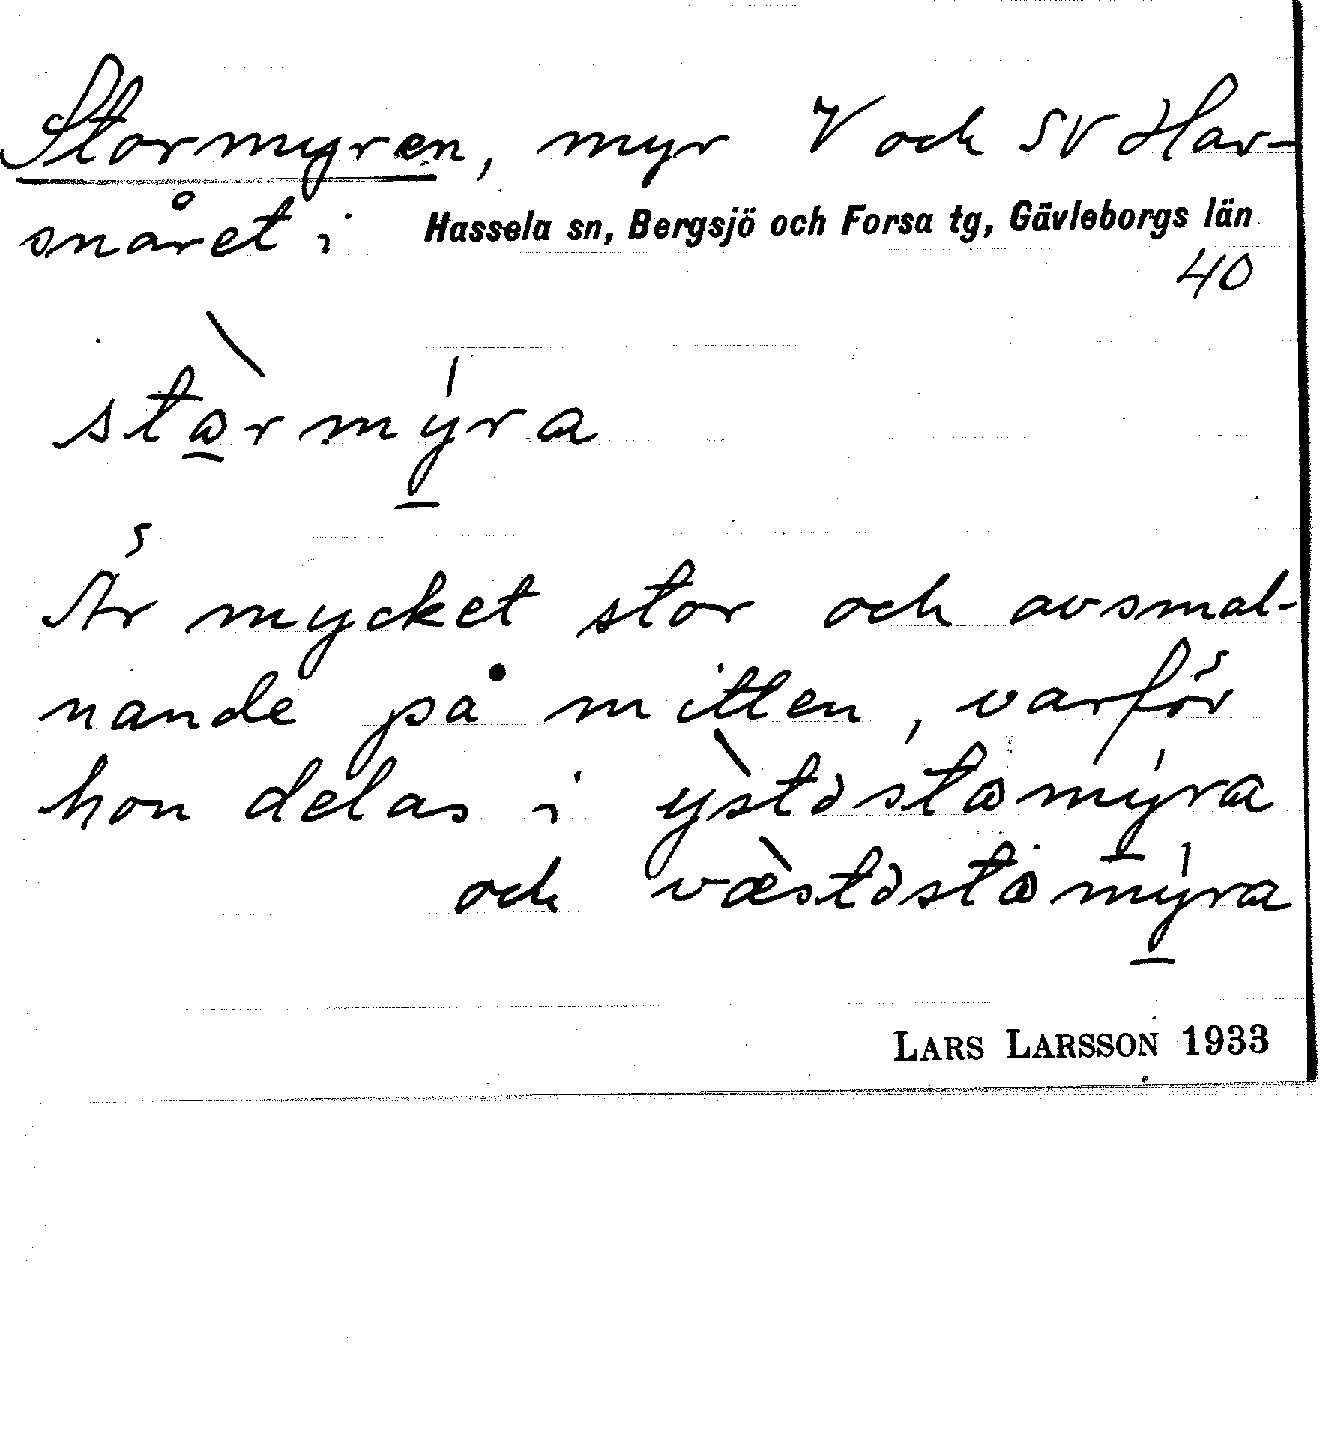 Stormyren, myr V och SV Har-
snåret i Hassela sn, Bergsjö och Forsa tg, Gävleborgs län
40
stɷ̀rmýra
Är mycket stor och avsmal-
nande på mitten, varför
hon delas i ỳstəstɷmýra
och væ̀stəstɷmýra
LARS LARSSON 1933